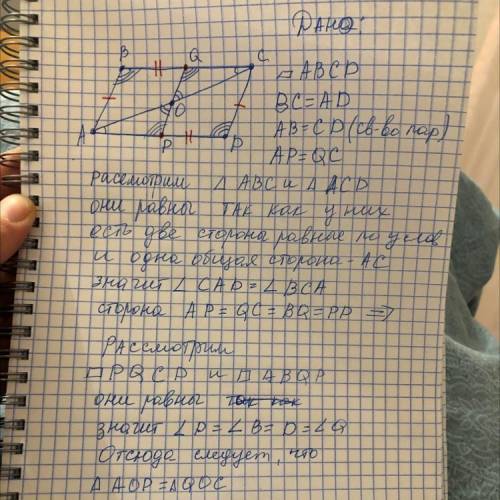 Дано:
B Q C
O
A P D
▱ABCD
BC=AD
AB=CD (св-во пар)
AP=QC
Рассмотрим △ABC и △ACD
они равны так как у них
есть две стороны равные по услов
и одна общая сторона-AC
значит ∠CAD=∠BCA
сторона AP=QC=BQ=PD ⇒
Рассмотрим
▱PQCD и ▱ABQP
они равны так как
значит ∠P=∠B=D=∠Q
Отсюда следует, что
△AOP=△QOC